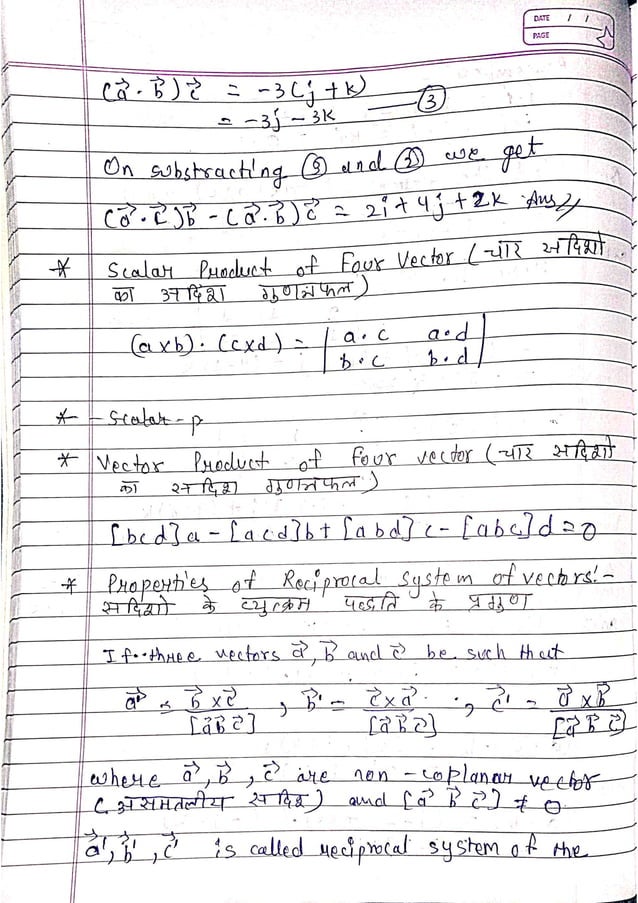 DATE / /
PAGE
(a⃗ · b⃗) c⃗ = -3(j + k)
= -3j - 3k ——— ③
On substracting ⑤ and ③ we get
(a⃗ · c⃗)b⃗ - (a⃗ · b⃗)c⃗ = 2i + 4j + 2k Ans
* Scalar Product of Four Vector (चार सदिशो
का अदिश गुणनफल)
(a×b) · (c×d) = | a·c a·d |
| b·c b·d |
* - Scalar - p
* Vector Product of four vector (चार सदिशो
का सदिश गुणनफल)
[bcd]a - [acd]b + [abd]c - [abc]d = 0
* Properties of Reciprocal System of vectors:-
सदिशो के व्युत्क्रम पद्धति के प्रगुण
If three vectors a⃗, b⃗ and c⃗ be such that
a⃗' = b⃗ × c⃗ / [a⃗ b⃗ c⃗] , b⃗' = c⃗ × a⃗ / [a⃗ b⃗ c⃗] , c⃗' = a⃗ × b⃗ / [a⃗ b⃗ c⃗]
where a⃗, b⃗, c⃗ are non-coplanar vector
(असमतलीय सदिश) and [a⃗ b⃗ c⃗] ≠ 0
a⃗', b⃗', c⃗' is called reciprocal system of the